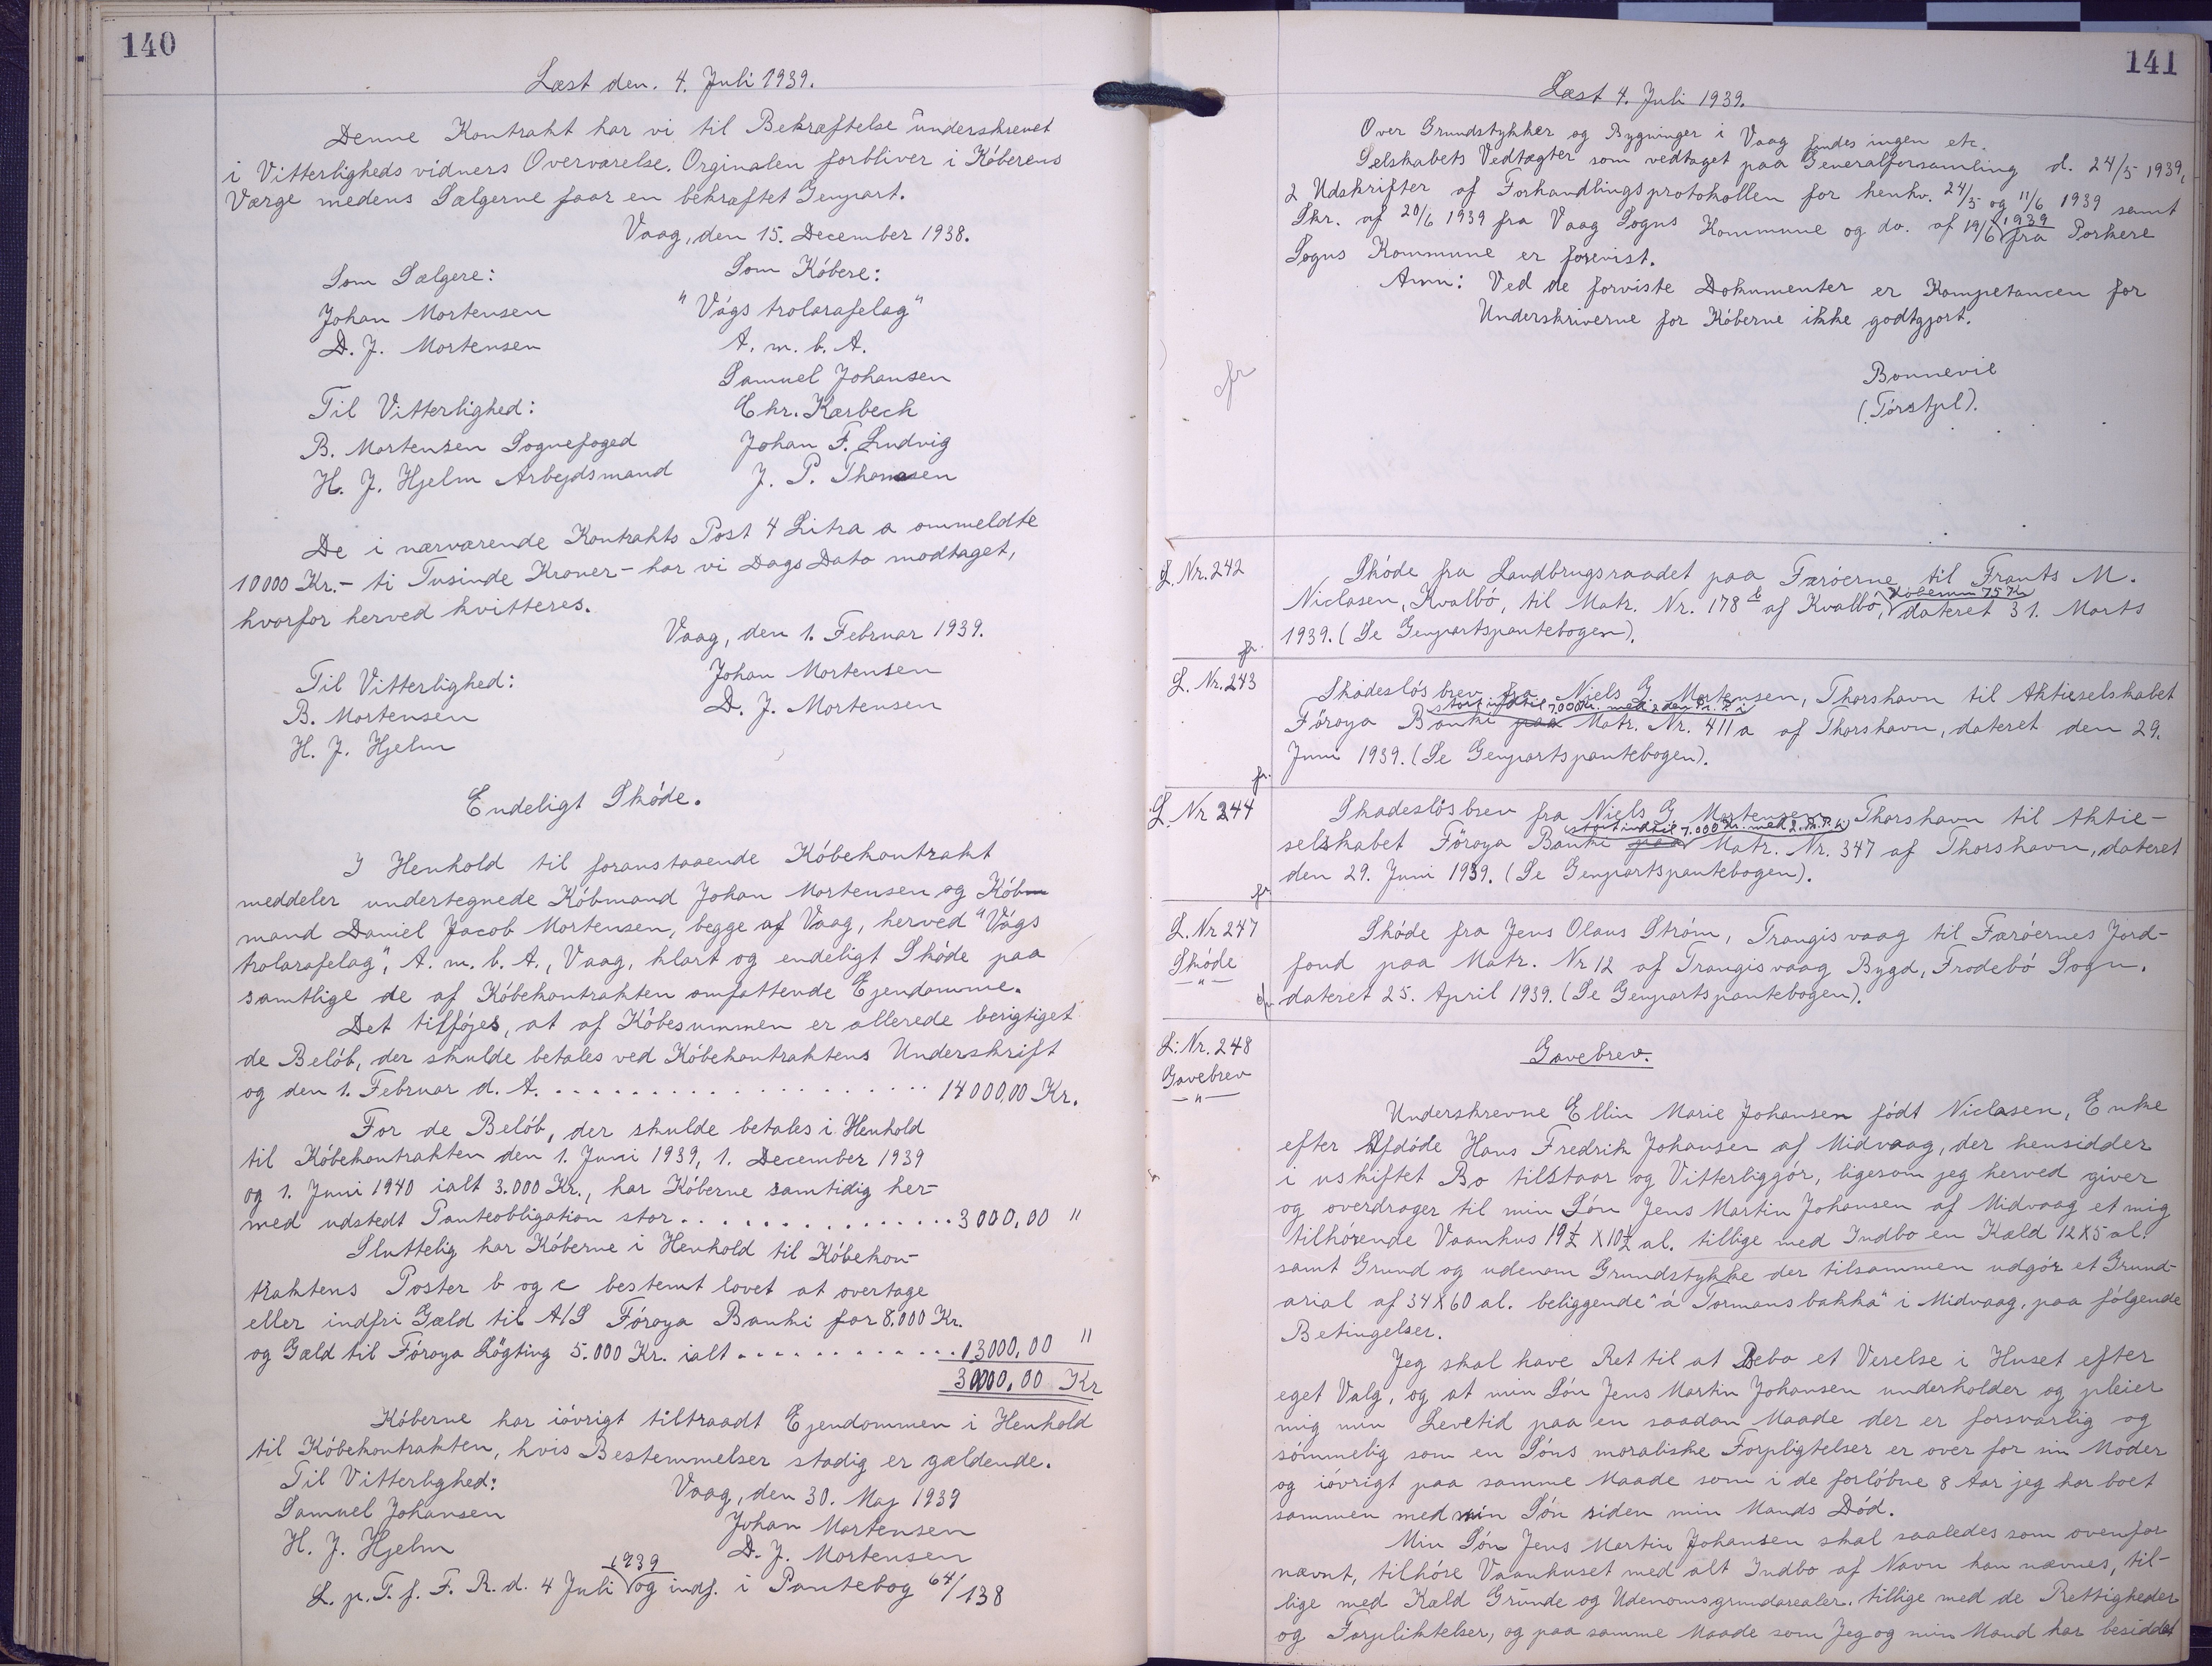 140
Læst den. 4. Juli 1939.
Denne Kontrakt har vi til Bekræftelse underskrevet
i Vitterligheds vidners Overværelse. Orginalen forbliver i Köberens
Værge medens Sælgerne faar en bekræftet Genpart.
Vaag, den 15. December 1938.
Som Sælgere:
Johan Mortensen
D. J. Mortensen
Som Köbere:
"Vágs trolarafelag"
A. m. b. A.
Samuel Johansen
Chr. Kærbech
Johan F. Ludvig
J. P. Thomsen
Til Vitterlighed:
B. Mortensen Sognefoged
H. J. Hjelm Arbejdsmand
De i nærværende Kontrakts Post 4 Litra a ommeldte
10000 Kr.- ti Tusinde Kroner - har vi Dags Dato modtaget,
hvorfor herved kvitteres.
Vaag, den 1. Februar 1939.
Johan Mortensen
D. J. Mortensen
Til Vitterlighed:
B. Mortensen
H. J. Hjelm
Endeligt Sköde.
I Henhold til foranstaaende Köbekontrakt
meddeler undertegnede Köbmand Johan Mortensen og Köb-
mand Daniel Jacob Mortensen, begge af Vaag, herved "Vágs
trolarafelag", A. m. b. A., Vaag, klart og endeligt Sköde paa
samtlige de af Köbekontrakten omfattende Ejendomme.
Det tilföjes, at af Köbesummen er allerede berigtiget
de Belöb, der skulde betales ved Köbekontraktens Underskrift
og den 1. Februar d. A. . . . . . . . . . . . . . . . . . . 14000,00 Kr.
For de Belöb, der skulde betales i Henhold
til Köbekontrakten den 1. Juni 1939, 1. December 1939
og 1. Juni 1940 ialt 3.000 Kr., har Köberne samtidig her-
med udstedt Panteobligation stor . . . . . . . . . . . . . . . 3000,00 "
Sluttelig har Köberne i Henhold til Köbekon-
traktens Poster b og c bestemt lovet at overtage
eller indfri Gæld til A/S Föroya Banki for 8.000 Kr.
og Gæld til Föroya Lögting 5.000 Kr. ialt . . . . . . . . . . . . 13000,00 "
30000,00 Kr
Köberne har iövrigt tiltraadt Ejendommen i Henhold
til Köbekontrakten, hvis Bestemmelser stadig er gældende.
Til Vitterlighed:
Samuel Johansen
H. J. Hjelm
Vaag, den 30. Maj 1939
Johan Mortensen
D. J. Mortensen
L. p. T. f. F. R. d. 4 Juli 1939 og indf. i Pantebog 64/138
141
Læst 4. Juli 1939.
Over Grundstykker og Bygninger i Vaag findes ingen etc.
Selskabets Vedtægter som vedtaget paa Generalforsamling d. 24/5 1939,
2 Udskrifter af Forhandlingsprotokollen for henhv. 24/5 og 11/6 1939 samt
Skr. af 20/6 1939 fra Vaag Sogns Kommune og do. af 19/6 1939 fra Porkere
Sogns Kommune er forevist.
Anm: Ved de forviste Dokumenter er Kompetancen for
Underskriverne for Köberne ikke godtgjort.
Bonnevie
(Tórstpl).
L. Nr. 242
Sköde fra Landbrugsraadet paa Færöerne til Frants M.
Niclasen, Kvalbö, til Matr. Nr. 178 b af Kvalbö, Köbesum 75 Kr dateret 31. Marts
1939. (Se Genpartspantebogen).
L. Nr. 243
Skadeslösbrev fra Niels G. Mortensen, Thorshavn til Aktieselskabet
Föroya Banki paa stort indtil 7.000 Kr. med 2den Pr. P. i Matr. Nr. 411a af Thorshavn, dateret den 29.
Juni 1939. (Se Genpartspantebogen).
L. Nr 244
Skadeslösbrev fra Niels G. Mortensen, Thorshavn til Aktie-
selskabet Föroya Banki paa stort indtil 7.000 Kr. med 2. Pr. P. i Matr. Nr. 347 af Thorshavn, dateret
den 29. Juni 1939. (Se Genpartspantebogen).
L. Nr 247
Sköde
-"-
Sköde fra Jens Olaus Ström, Trangisvaag til Færöernes Jord-
fond paa Matr. Nr 12 af Trangisvaag Bygd, Frodebö Sogn.
dateret 25. April 1939. (Se Genpartspantebogen).
L: Nr. 248
Gavebrev
-"-
Gavebrev.
Underskrevne Ellin Marie Johansen födt Niclasen, Enke
efter Afdöde Hans Fredrik Johansen af Midvaag, der hensidder
i uskiftet Bo tilstaar og Vitterliggör, ligesom jeg herved giver
og overdrager til min Sön Jens Martin Johansen af Midvaag et mig
tilhörende Vaanhus 19½ X 10½ al. tillige med Indbo en Kæld 12X5 al.
samt Grund og udenom Grundstykke der tilsammen udgör et Grund-
arial af 34X60 al. beliggende "á Tormansbakka" i Midvaag, paa fölgende
Betingelser.
Jeg skal have Ret til at Bebo et Verelse i Huset efter
eget Valg, og at min Sön Jens Martin Johansen underholder og pleier
mig min Levetid paa en saadan Maade der er forsvarlig og
sömmelig som en Söns moraliske Forpligtelser er over for sin Moder
og iövrigt paa samme Maade som i de forlöbne 8 Aar jeg har boet
sammen med min Sön siden min Mands Död.
Min Sön Jens Martin Johansen skal saaledes som ovenfor
nævnt, tilhöre Vaanhuset med alt Indbo af Navn kan nævnes, til-
lige med Kæld Grunde og Udenomsgrundarealer. tillige med de Rettigheder
og Forpliktelser, og paa samme Maade som Jeg og min Mand har besiddet